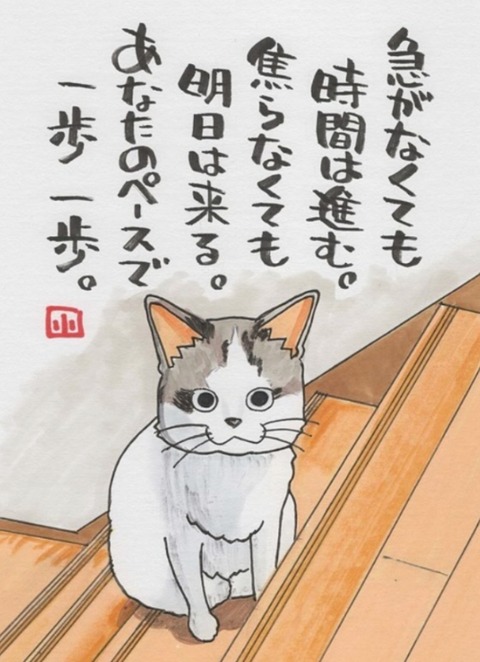 急がなくても
時間は進む。
焦らなくても
明日は来る。
あなたのペースで
一歩一歩。
山